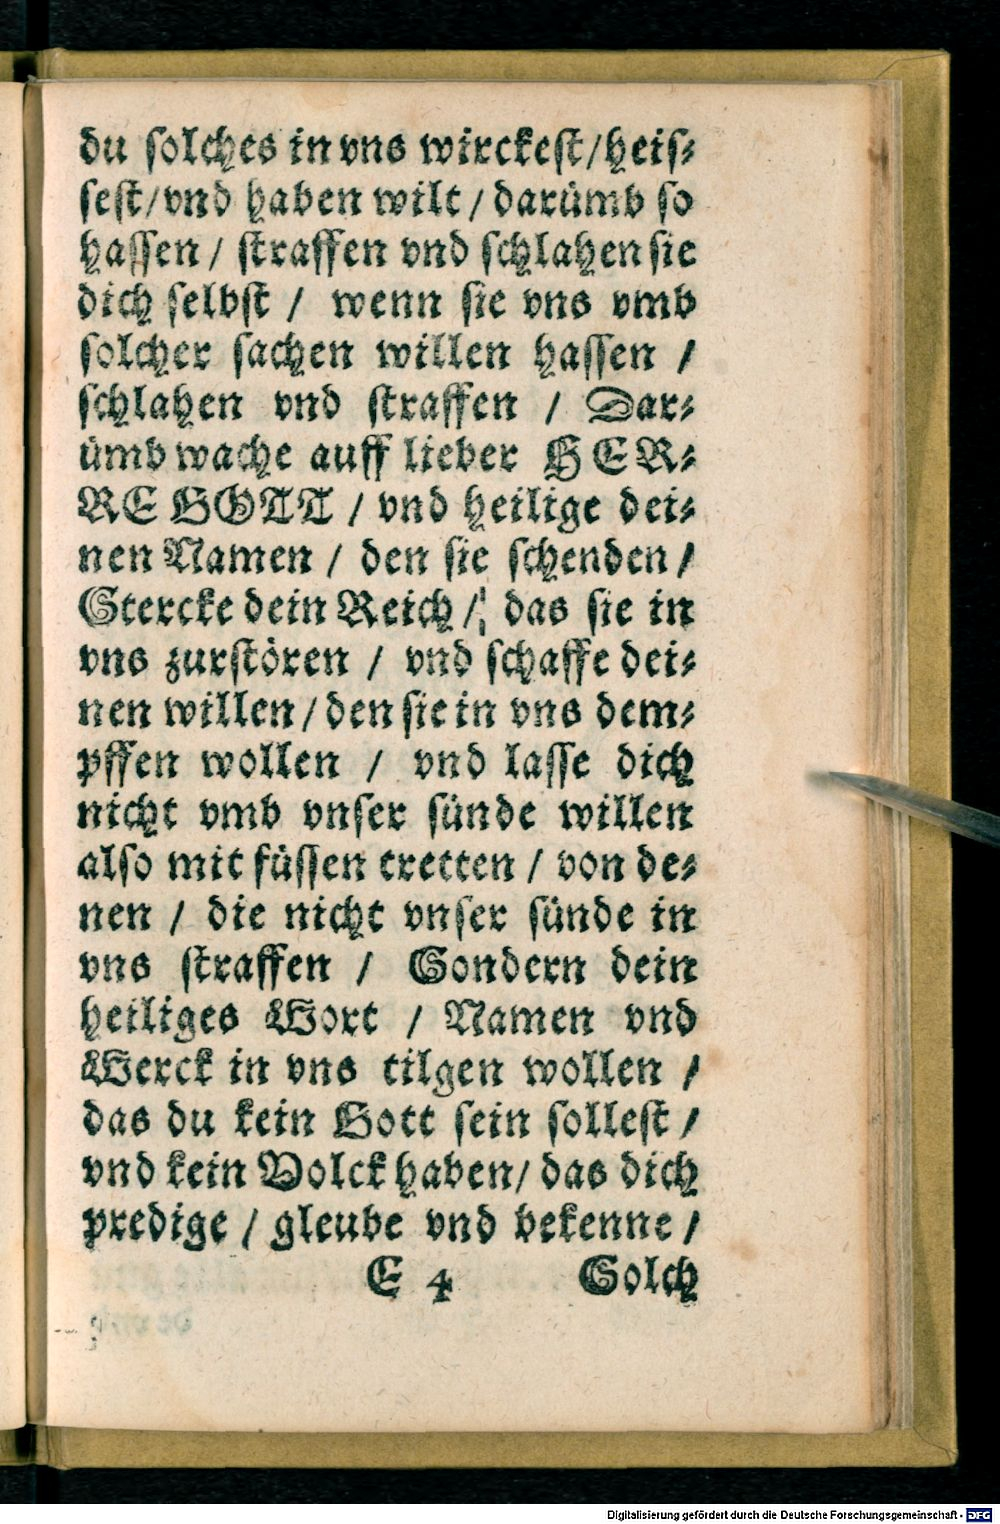 du solches in vns wirckest/heis⸗
sest/vnd haben wilt / darümb so
hassen / straffen vnd schlahen sie
dich selbst / wenn sie vns vmb
solcher sachen willen hassen /
schlahen vnd straffen / Dar⸗
ümb wache auff lieber HER⸗
RE GOTT / vnd heilige dei⸗
nen Namen / den sie schenden /
Stercke dein Reich / das sie in
vns zurstören / vnd schaffe dei⸗
nen willen / den sie in vns dem⸗
pffen wollen / vnd lasse dich
nicht vmb vnser sünde willen
also mit füssen tretten / von de⸗
nen / die nicht vnser sünde in
vns straffen / Sondern dein
heiliges Wort / Namen vnd
Werck in vns tilgen wollen /
das du kein Gott sein sollest /
vnd kein Volck haben/ das dich
predige / gleube vnd bekenne /
E 4 Solch
Digitalisierung gefördert durch die Deutsche Forschungsgemeinschaft - DFG